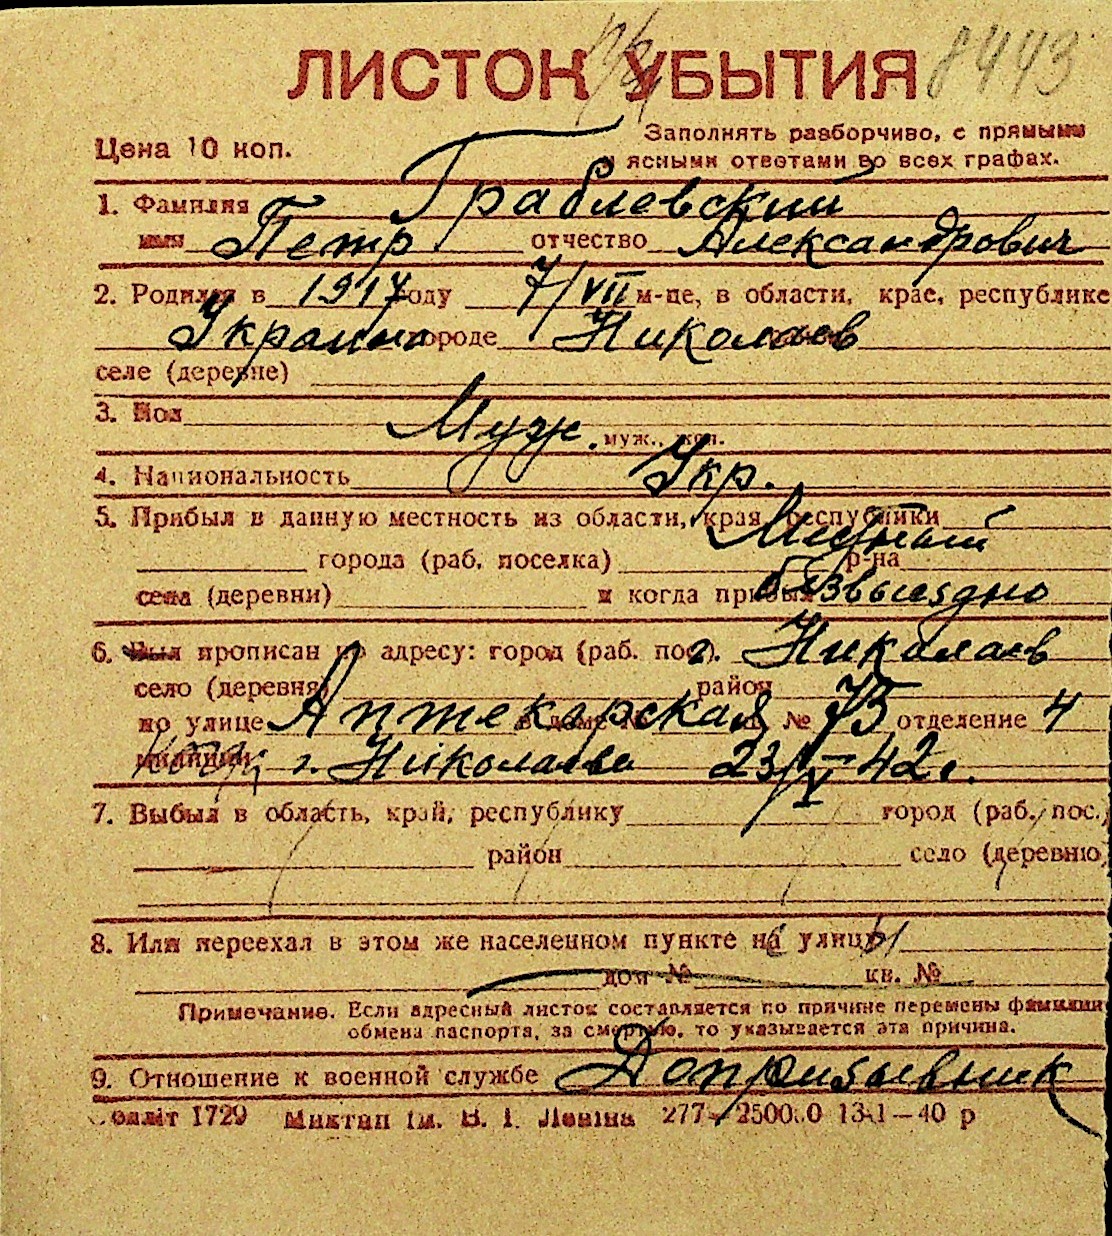 ЛИСТОК УБЫТИЯ 8443
Цена 10 коп.
Заполнять разборчиво, с прямыми
и ясными ответами во всех графах.
1. Фамилия Граблевский
имя Петр отчество Александрович
2. Родился в 1917 году 7/VII м-це, в области, крае, республике
Украина городе Николаев
селе (деревне)
3. Пол Муж. муж., жен.
4. Национальность Укр.
5. Прибыл в данную местность из области, края, республики
города (раб. поселка) р-на
села (деревни) и когда прибыл безвыездно
6. Был прописан по адресу: город (раб. пос.) г. Николаев
село (деревня) район
по улице Аптекарская в доме № кв. № 75 отделение 4
милиции г. Николаева 23/V-42 г.
7. Выбыл в область, край, республику город (раб. пос.)
район село (деревню)
8. Или переехал в этом же населенном пункте на улицу
дом № кв. №
Примечание. Если адресный листок составляется по причине перемены фамилии,
обмена паспорта, за смертью, то указывается эта причина.
9. Отношение к военной службе Допризывник
1729 ім. В. І. Леніна 277—